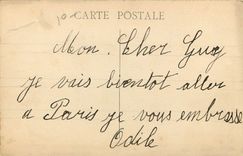 CARTE POSTALE
Mon. Cher Guy
je vais bientot aller
a Paris je vous embrasse
Odile